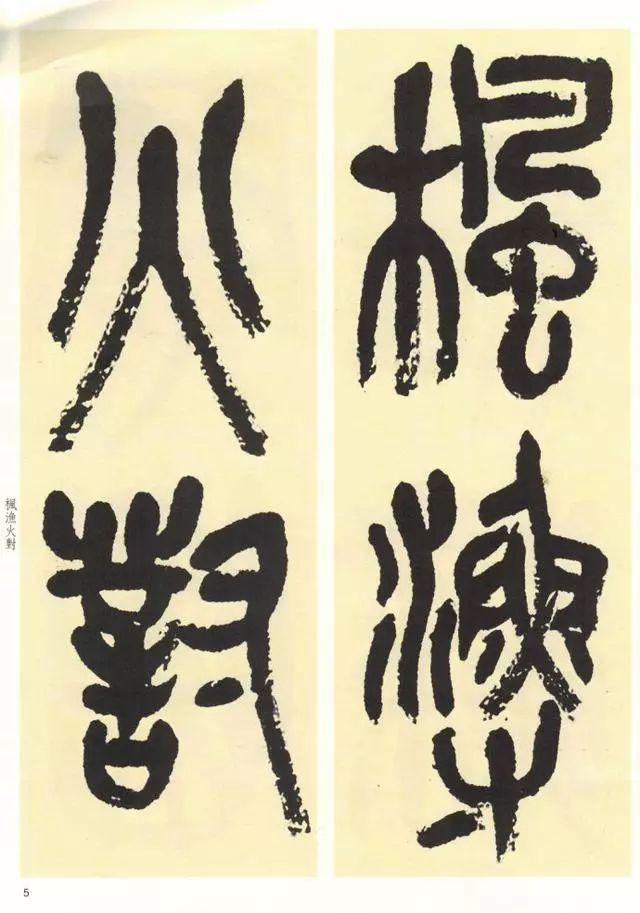 楓漁
火對
楓漁火對
5